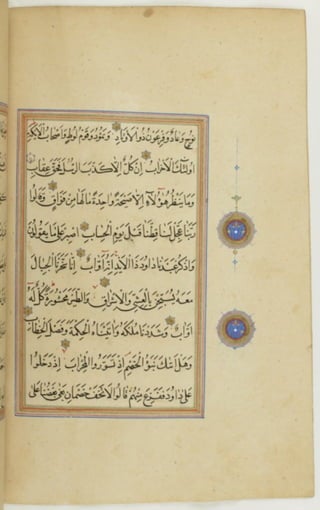 نوح وعاد وفرعون ذوا الاوتاد وثمود وقوم لوط واصحاب الايكة
اولئك الاحزاب ان كل الا كذب الرسل فحق عقاب
وما ينظر هؤلاء الا صيحة واحدة ما لها من فواق وقالوا
ربنا عجل لنا قطنا قبل يوم الحساب اصبر على ما يقولون
واذكر عبدنا داود ذا الايد انه اواب انا سخرنا الجبال
معه يسبحن بالعشي والاشراق والطير محشورة كل له
اواب وشددنا ملكه واتيناه الحكمة وفصل الخطاب
وهل اتيك نبؤ الخصم اذ تسوروا المحراب اذ دخلوا
على داود ففزع منهم قالوا لا تخف خصمان بغى بعضنا على